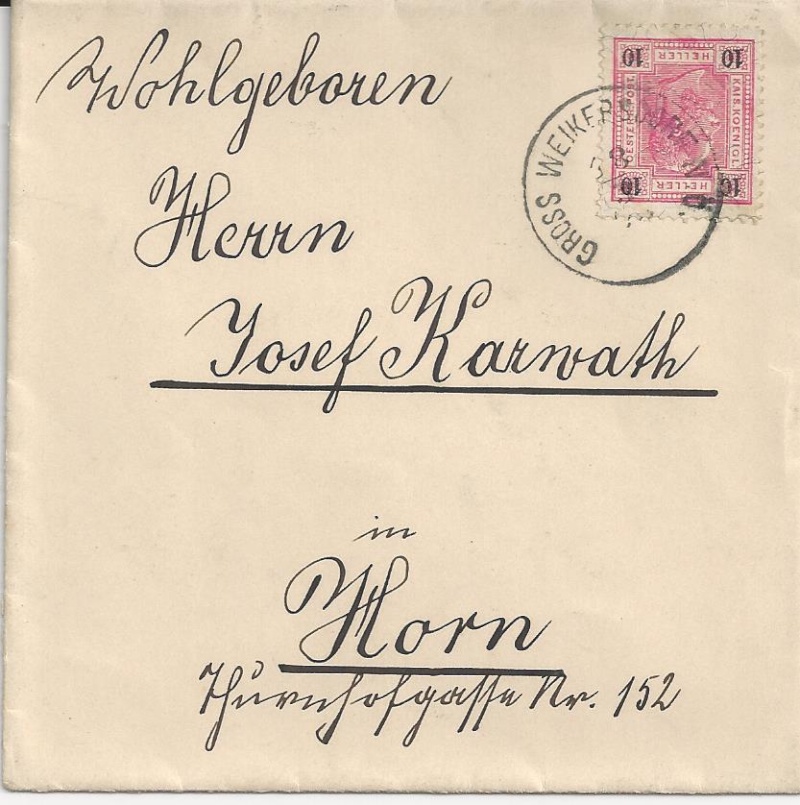 Wohlgeboren
Herrn
Josef Karwath
in
Horn
Thurnhofgasse Nr. 152
10 HELLER 10
KAIS. KOENIGL.
OESTERR. POST.
10 HELLER 10
GROSS WEIKERSDORF